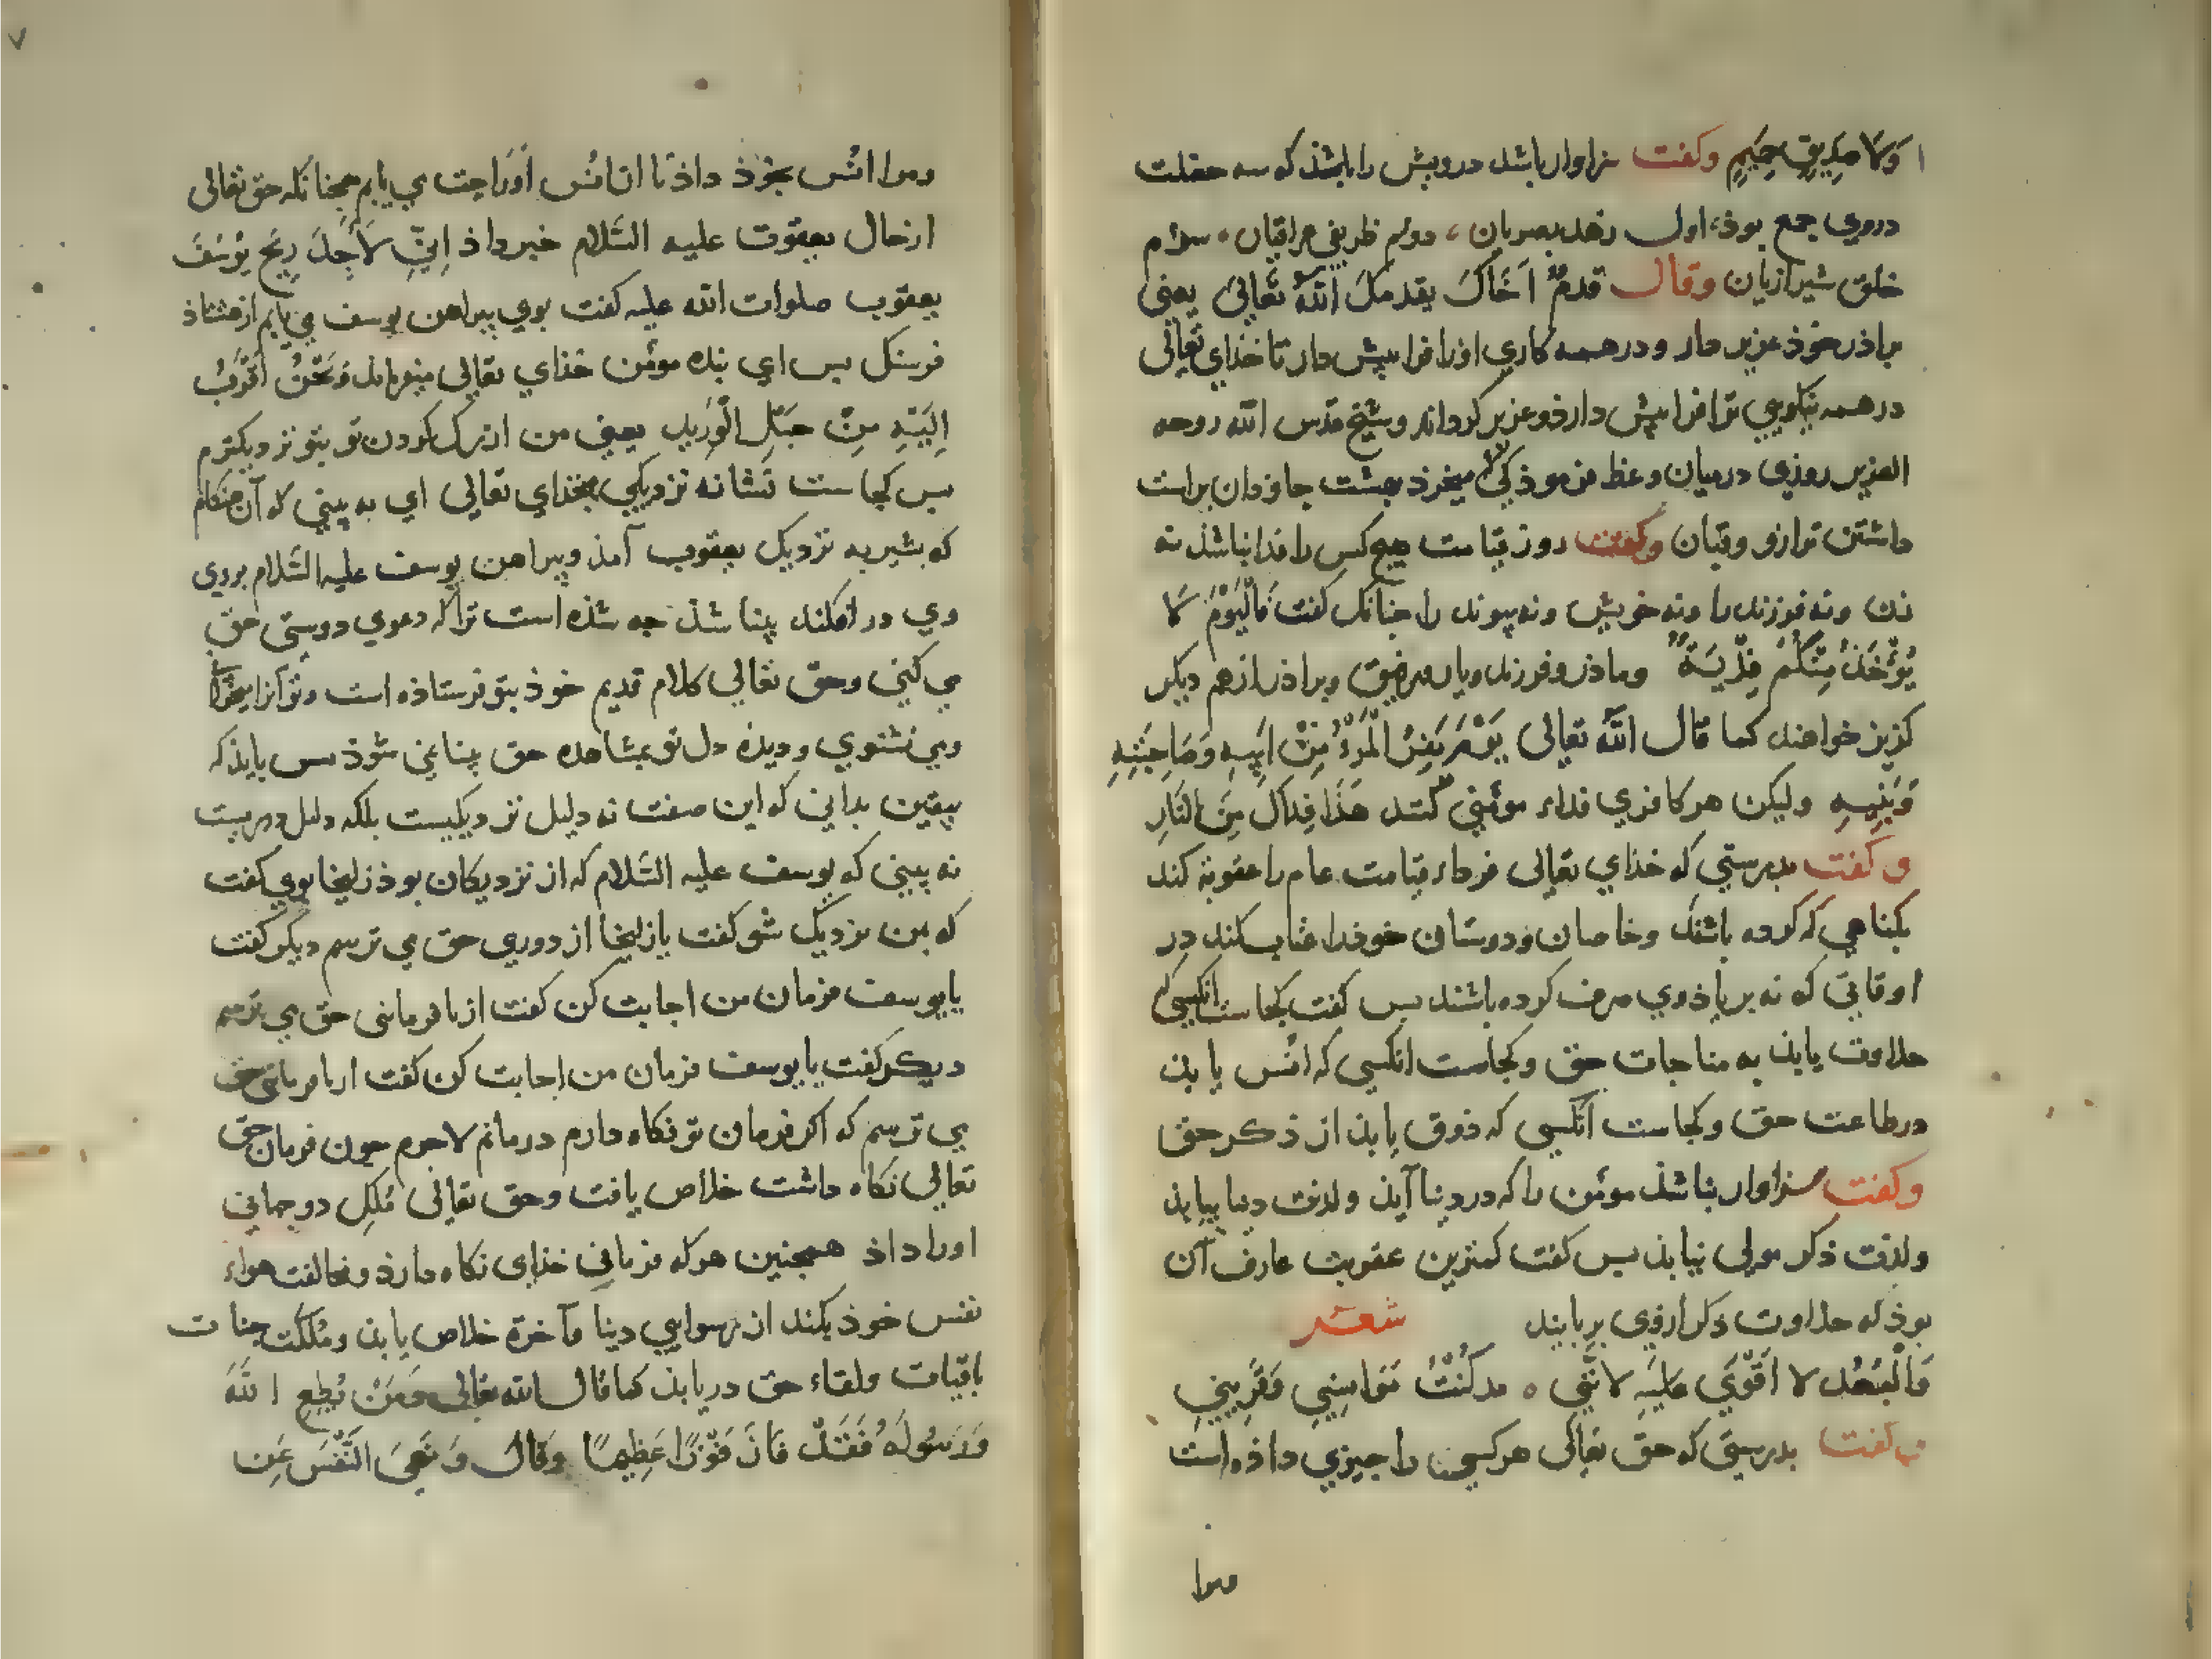 ولا صدیق حمیم وکفت سزاوار باشد درویش را باشذ که سه خصلت
دروی جمع بوذ، اول زهد بصریان، دوم ظریفی عراقیان، سوم
خلق شیرازیان وقال قدم اخاک یقدمک الله تعالی یعنی
براذر خوذ عزیز دار ودر همه کاری اورا فرا پیش دار تا خذای تعالی
در همه نیکویی ترا فرا پیش دارذ وعزیز کرداند وشیخ قدس الله روحه
العزیز روزی درمیان وعظ فرموذ کی میخرذ بهشت جاوذان براست
داشتن ترازو وقبان وکفت روز قیامت هیچ کس را فدا نباشذ نه
زن ونه فرزند را ونه خویش ونه پیوند را چنانک کفت فالیوم لا
یؤخذ منکم فدیة وماذر وفرزند ویار ورفیق وبراذر از هم دیکر
کریز خواهند کما قال الله تعالی یوم یفر المرء من ابیه وصاحبته
وبنیه ولیکن هر کافری فداء مومنی کنند هذا فداک من النار
وکفت بدرستی که خذای تعالی فرداء قیامت عام را عقوبة کند
بکناهی که کرده باشند وخاصان ودوستان خوذ را عتاب کند در
اوقاتی که نه بر یاذ وی صرف کرده باشند پس کفت کجاست انکسی که
حلاوت یابذ به مناجات حق وکجاست انکسی که انس یابذ
در طاعت حق وکجاست انکسی که ذوق یابذ از ذکر حق
وکفت سزاوار نباشذ مومن را که در دنیا آیذ ولذت دنیا بیابذ
ولذت ذکر مولی نیابذ پس کفت کمترین عقوبت عارف آن
بوذ که حلاوت ذکر ازوی بربایند شعر
فالبعد لا اقوی علیه لاننی ه مذ کنت تواسینی وقربینی
وکفت بدرستی که حق تعالی هر کسی را چیزی داذه است
ومرا
ومرا انس بخوذ داذ تا ازان انس اوراحت می یابم همچنانکه حق تعالی
ازحال یعقوب علیه السلام خبر داذ انی لاجد ریح یوسف
یعقوب صلوات الله علیه کفت بوی پیراهن یوسف می یابم از هشتاذ
فرسنک پس ای بنده مومن خذای تعالی میفرماید ونحن اقرب
الیه من حبل الورید یعنی من ازرک کردن تو بتو نزدیکترم
پس کجاست نشانه نزدیکی بخذای تعالی ای نه بینی که آن هنکام
که بشیر به نزدیک یعقوب آمذ وپیراهن یوسف علیه السلام بروی
وی در افکند بینا شذ چه شذه است ترا که دعوی دوستی حق
می کنی وحق تعالی کلام قدیم خوذ بتو فرستاذه است وتو آنرا میخوانی
ومی شنوی ودیذه دل تو بمشاهده حق بینا نمی شوذ پس بایذ که
بیقین بدانی که این صفت نه دلیل نزدیکیست بلکه دلیل دوریست
نه بینی که یوسف علیه السلام که از نزدیکان بوذ زلیخا بوی کفت
که بمن نزدیک شو کفت یا زلیخا از دوری حق می ترسم دیکر کفت
یا یوسف فرمان من اجابت کن کفت از نافرمانی حق می ترسم
دیکر کفت یا یوسف فرمان من اجابت کن کفت از نافرمانی حق
می ترسم که اکر فرمان تو نکاه دارم درمانم لاجرم چون فرمان حق
تعالی نکاه داشت خلاص یافت وحق تعالی ملک دو جهانی
اورا داذ همچنین هر که فرمان خذای نکاه دارذ ومخالفت هواء
نفس خوذ بکند از رسوایی دنیا وآخرة خلاص یابذ ومملکت جنات
باقیات ولقاء حق دریابذ کما قال الله تعالی ومن یطع الله
ورسوله فقد فاز فوزا عظیما وقال ونهی النفس عن